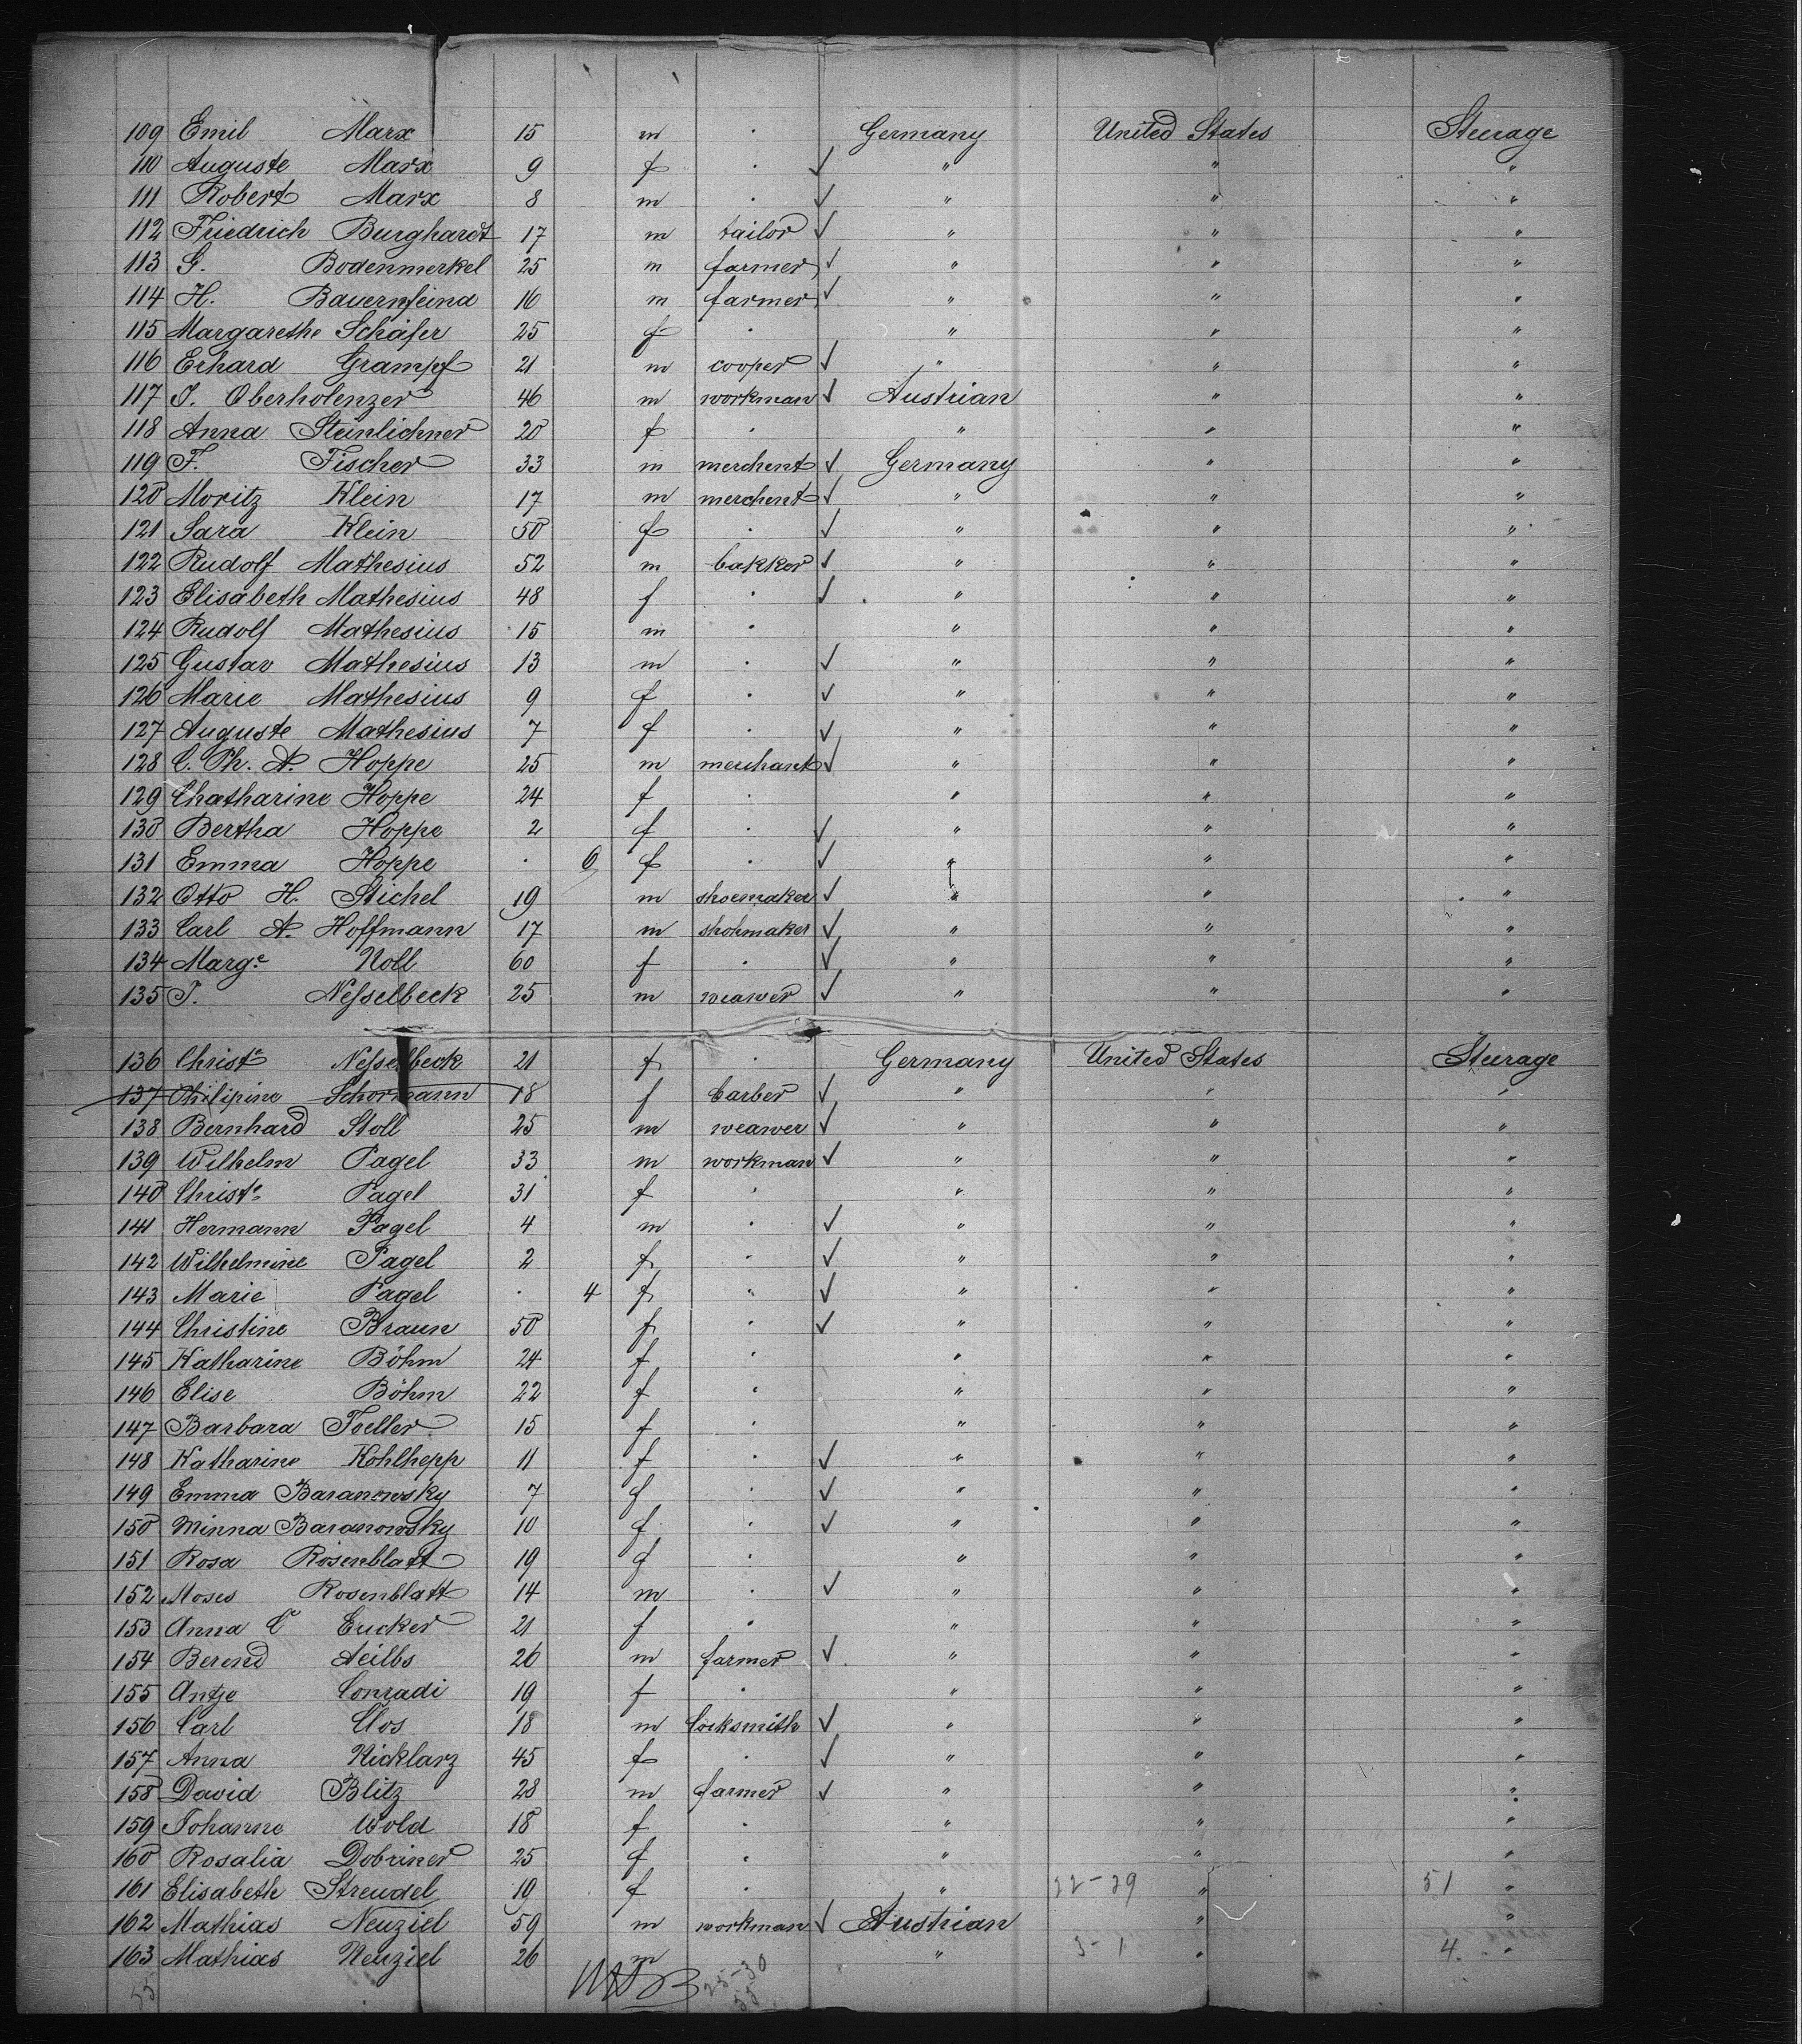 109 Emil Marx 15 m . Germany United States Steerage
110 Auguste Marx 9 f . ✓ " " "
111 Robert Marx 8 m . ✓ " " "
112 Friedrich Burghardt 17 m tailor ✓ " " "
113 G. Bodenmerkel 25 m farmer ✓ " " "
114 H. Bauernfeind 16 m farmer ✓ " " "
115 Margarethe Schäfer 25 f . " " "
116 Erhard Grampf 21 m cooper ✓ " " "
117 J. Oberholenzer 46 m workman ✓ Austrian " "
118 Anna Steinlichner 20 f . " " "
119 F. Fischer 33 m merchent ✓ Germany " "
120 Moritz Klein 17 m merchent ✓ " " "
121 Sara Klein 50 f . ✓ " " "
122 Rudolf Mathesius 52 m bakker ✓ " " "
123 Elisabeth Mathesius 48 f . ✓ " " "
124 Rudolf Mathesius 15 m . " " "
125 Gustav Mathesius 13 m . ✓ " " "
126 Marie Mathesius 9 f . ✓ " " "
127 Auguste Mathesius 7 f . ✓ " " "
128 C. Ph. A. Hoppe 25 m merchant ✓ " " "
129 Chatharine Hoppe 24 f . " " "
130 Bertha Hoppe 2 f . ✓ " " "
131 Emma Hoppe . 6 f . ✓ " " "
132 Otto H. Stichel 19 m shoemaker ✓ " " "
133 Carl A. Hoffmann 17 m shohmaker ✓ " " "
134 Marg.e Noll 60 f . ✓ " " "
135 J. Neſselbeck 25 m weawer ✓ " " "
136 Christe Neſselbeck 21 f . Germany United States Steerage
137 Philipine Schormann 18 f barber ✓ " " "
138 Bernhard Stoll 25 m weawer ✓ " " "
139 Wilhelm Pagel 33 m workman ✓ " " "
140 Christe Pagel 31 f . " " "
141 Hermann Pagel 4 m . ✓ " " "
142 Wilhelmine Pagel 2 f . ✓ " " "
143 Marie Pagel . 4 f " ✓ " " "
144 Christine Braun 50 f . ✓ " " "
145 Katharine Böhm 24 f . " " "
146 Elise Böhm 22 f . " " "
147 Barbara Toeller 15 f . " " "
148 Katharine Kohlhepp 11 f . ✓ " " "
149 Emma Baranowsky 7 f . ✓ " " "
150 Minna Baranowsky 10 f . ✓ " " "
151 Rosa Rosenblatt 19 f . " " "
152 Moses Rosenblatt 14 m . ✓ " " "
153 Anna C Eucker 21 f . " " "
154 Berend Aeilbs 26 m farmer ✓ " " "
155 Antje Conradi 19 f . " " "
156 Carl Clos 18 m locksmith ✓ " " "
157 Anna Nicklarz 45 f . ✓ " " "
158 David Blitz 28 m farmer ✓ " " "
159 Johanne Wold 18 f . " " "
160 Rosalia Dobriner 25 f . " " "
161 Elisabeth Streudel 19 f . " 22-29 " 51 "
162 Mathias Neuziel 59 m workman ✓ Austrian " "
163 Mathias Neuziel 26 m " 3-1 " 4 "
55 25-30
55